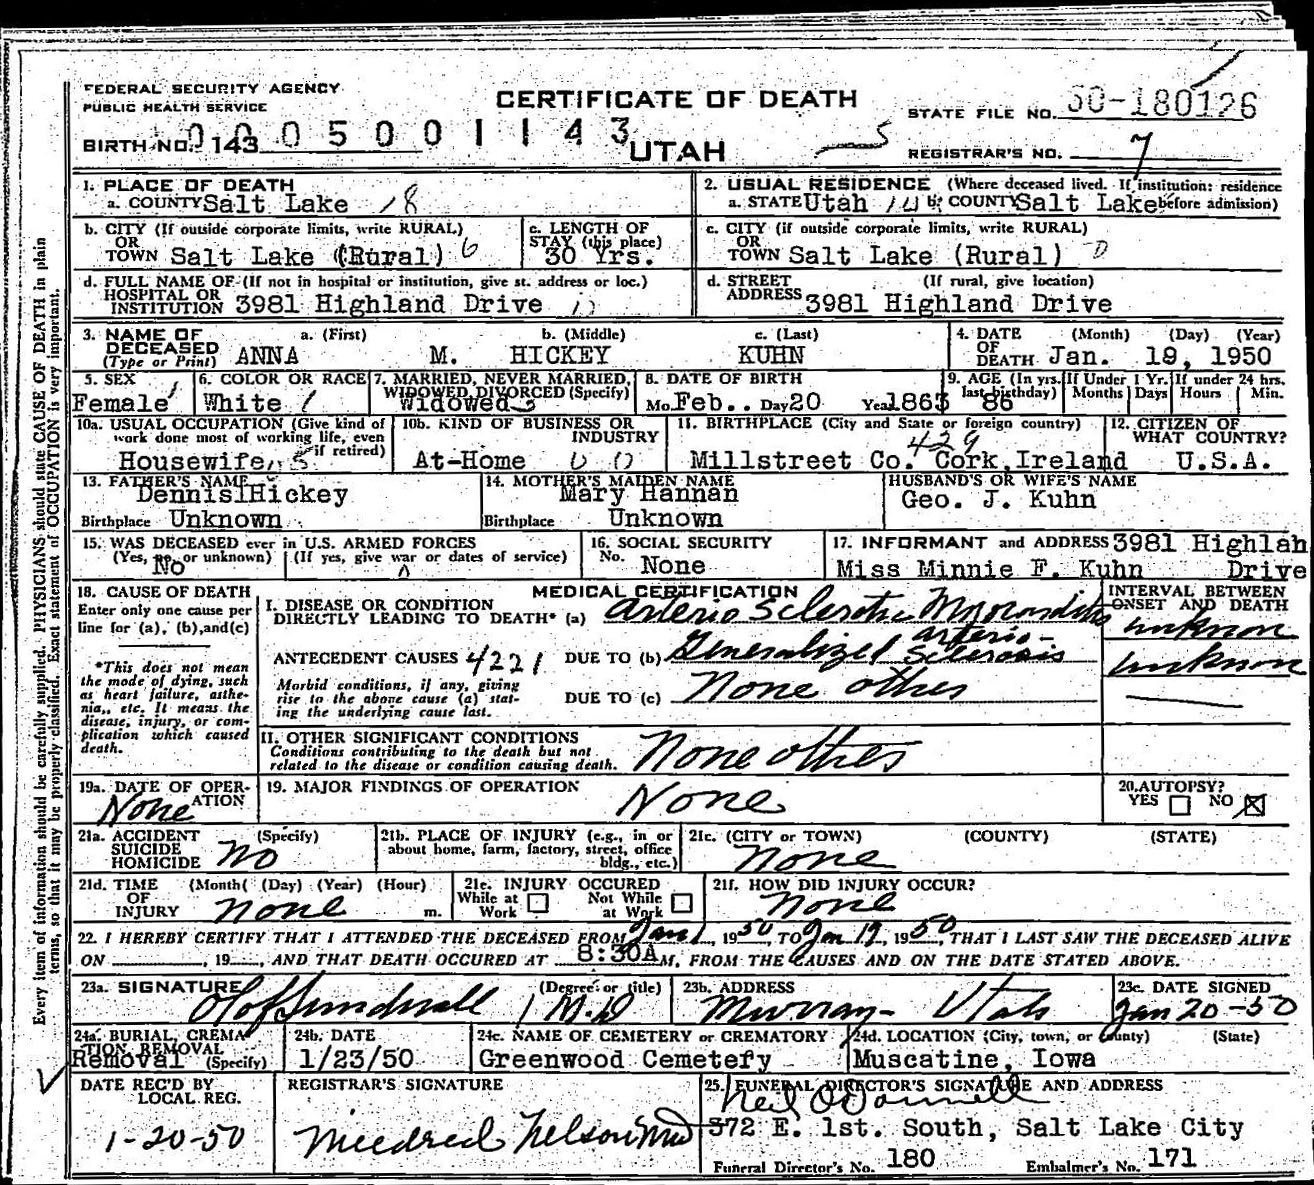 FEDERAL SECURITY AGENCY
PUBLIC HEALTH SERVICE
CERTIFICATE OF DEATH
STATE FILE NO. 50-180126
BIRTH NO. 143 0005001143
UTAH
REGISTRAR'S NO. 7
1. PLACE OF DEATH
a. COUNTY Salt Lake 18
2. USUAL RESIDENCE (Where deceased lived. If institution: residence before admission)
a. STATE Utah b. COUNTY Salt Lake
b. CITY (If outside corporate limits, write RURAL)
OR
TOWN Salt Lake (Rural) 6
c. LENGTH OF STAY (this place)
30 Yrs.
c. CITY (if outside corporate limits, write RURAL)
OR
TOWN Salt Lake (Rural)
d. FULL NAME OF (If not in hospital or institution, give st. address or loc.)
HOSPITAL OR
INSTITUTION 3981 Highland Drive
d. STREET (If rural, give location)
ADDRESS 3981 Highland Drive
3. NAME OF DECEASED (Type or Print)
a. (First) b. (Middle) c. (Last)
ANNA M. HICKEY KUHN
4. DATE OF DEATH (Month) (Day) (Year)
Jan. 19, 1950
5. SEX
Female
6. COLOR OR RACE
White
7. MARRIED, NEVER MARRIED, WIDOWED, DIVORCED (Specify)
Widowed
8. DATE OF BIRTH
Mo. Feb.. Day 20 Year 1863
9. AGE (In yrs. last birthday)
86
If Under 1 Yr. Months Days
If under 24 hrs. Hours Min.
10a. USUAL OCCUPATION (Give kind of work done most of working life, even if retired)
Housewife
10b. KIND OF BUSINESS OR INDUSTRY
At-Home
11. BIRTHPLACE (City and State or foreign country)
429
Millstreet Co. Cork, Ireland
12. CITIZEN OF WHAT COUNTRY?
U.S.A.
13. FATHER'S NAME
Dennis Hickey
Birthplace Unknown
14. MOTHER'S MAIDEN NAME
Mary Hannan
Birthplace Unknown
HUSBAND'S OR WIFE'S NAME
Geo. J. Kuhn
15. WAS DECEASED ever in U.S. ARMED FORCES
(Yes, no or unknown) (If yes, give war or dates of service)
No
16. SOCIAL SECURITY
No. None
17. INFORMANT and ADDRESS 3981 Highlah
Miss Minnie F. Kuhn Drive
18. CAUSE OF DEATH
Enter only one cause per line for (a), (b), and (c)
*This does not mean the mode of dying, such as heart failure, asthenia, etc. It means the disease, injury, or complication which caused death.
MEDICAL CERTIFICATION
INTERVAL BETWEEN ONSET AND DEATH
I. DISEASE OR CONDITION
DIRECTLY LEADING TO DEATH* (a) Arterio Sclerotic Myocarditis unknown
ANTECEDENT CAUSES 4221 DUE TO (b) Generalized arterio-sclerosis unknown
Morbid conditions, if any, giving rise to the above cause (a) stating the underlying cause last.
DUE TO (c) None other
II. OTHER SIGNIFICANT CONDITIONS
Conditions contributing to the death but not related to the disease or condition causing death.
None other
19a. DATE OF OPERATION
None
19. MAJOR FINDINGS OF OPERATION
None
20. AUTOPSY?
YES NO X
21a. ACCIDENT SUICIDE HOMICIDE (Specify)
No
21b. PLACE OF INJURY (e.g., in or about home, farm, factory, street, office bldg., etc.)
21c. (CITY or TOWN) (COUNTY) (STATE)
None
21d. TIME OF INJURY (Month) (Day) (Year) (Hour) m.
None
21e. INJURY OCCURED
While at Work Not While at Work
21f. HOW DID INJURY OCCUR?
None
22. I HEREBY CERTIFY THAT I ATTENDED THE DECEASED FROM Jan 1, 1950, TO Jan 19, 1950, THAT I LAST SAW THE DECEASED ALIVE
ON , 19 , AND THAT DEATH OCCURED AT 8:30A M, FROM THE CAUSES AND ON THE DATE STATED ABOVE.
23a. SIGNATURE (Degree or title)
Olof Sundwall M.D
23b. ADDRESS
Murray- Utah
23c. DATE SIGNED
Jan 20-50
24a. BURIAL, CREMATION, REMOVAL (Specify)
Removal
24b. DATE
1/23/50
24c. NAME OF CEMETERY or CREMATORY
Greenwood Cemetery
24d. LOCATION (City, town, or County) (State)
Muscatine, Iowa
DATE REC'D BY LOCAL REG.
1-20-50
REGISTRAR'S SIGNATURE
Mildred Nelson
25. FUNERAL DIRECTOR'S SIGNATURE AND ADDRESS
Neil O'Donnell
372 E. 1st. South, Salt Lake City
Funeral Director's No. 180 Embalmer's No. 171
Every item of information should be carefully supplied. PHYSICIANS should state CAUSE OF DEATH in plain
terms, so that it may be properly classified. Exact statement of OCCUPATION is very important.